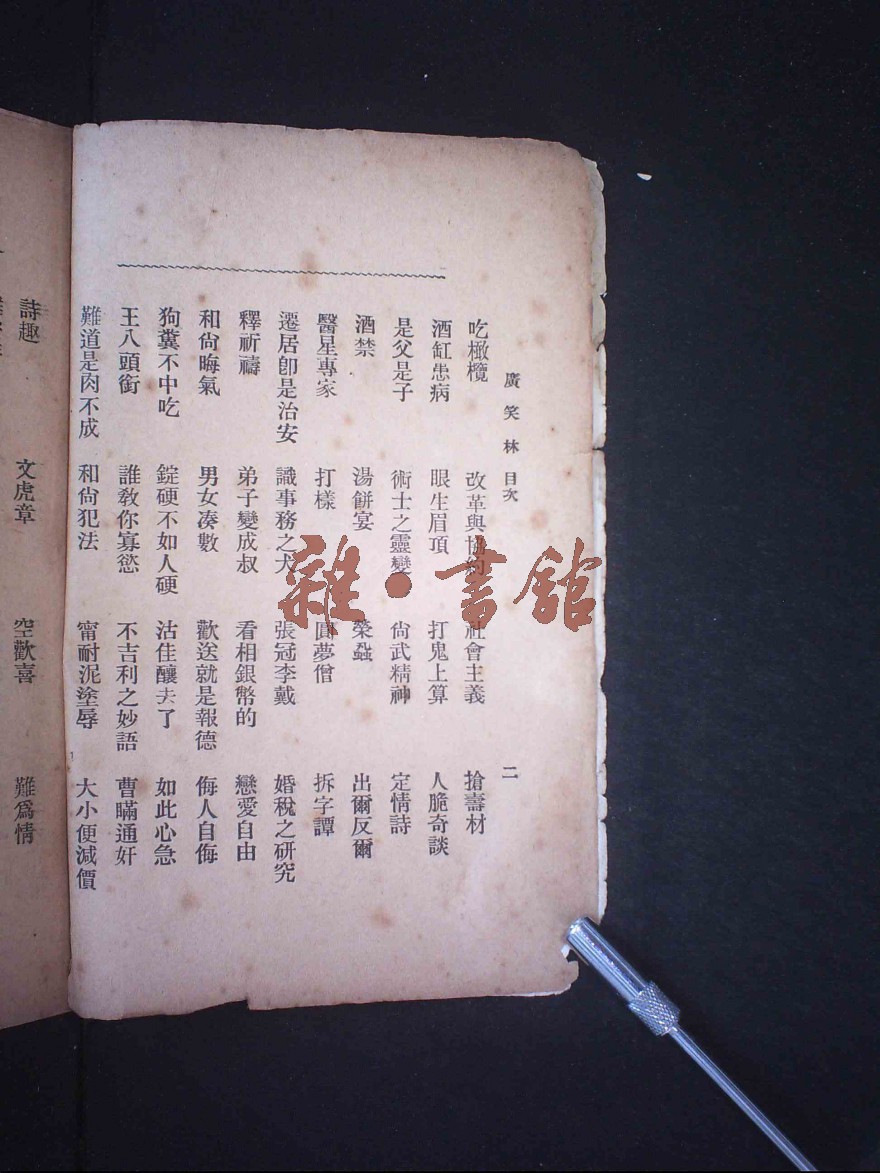 廣笑林目次 二
吃橄欖 改革與協約 社會主義 搶壽材
酒缸患病 眼生眉項 打鬼上算 人脆奇談
是父是子 術士之靈變 尙武精神 定情詩
酒禁 湯餅宴 榮蝨 出爾反爾
醫星專家 打樣 圓夢僧 拆字譚
遷居卽是治安 識事務之犬 張冠李戴 婚稅之研究
釋祈禱 弟子變成叔 看相銀幣的 戀愛自由
和尙晦氣 男女凑數 歡送就是報德 侮人自侮
狗糞不中吃 錠硬不如人硬 沽佳釀去了 如此心急
王八頭銜 誰敎你寡慾 不吉利之妙語 曹瞞通奸
難道是肉不成 和尙犯法 甯耐泥塗辱 大小便減價
詩趣 文虎章 空歡喜 難爲情
雜·書館